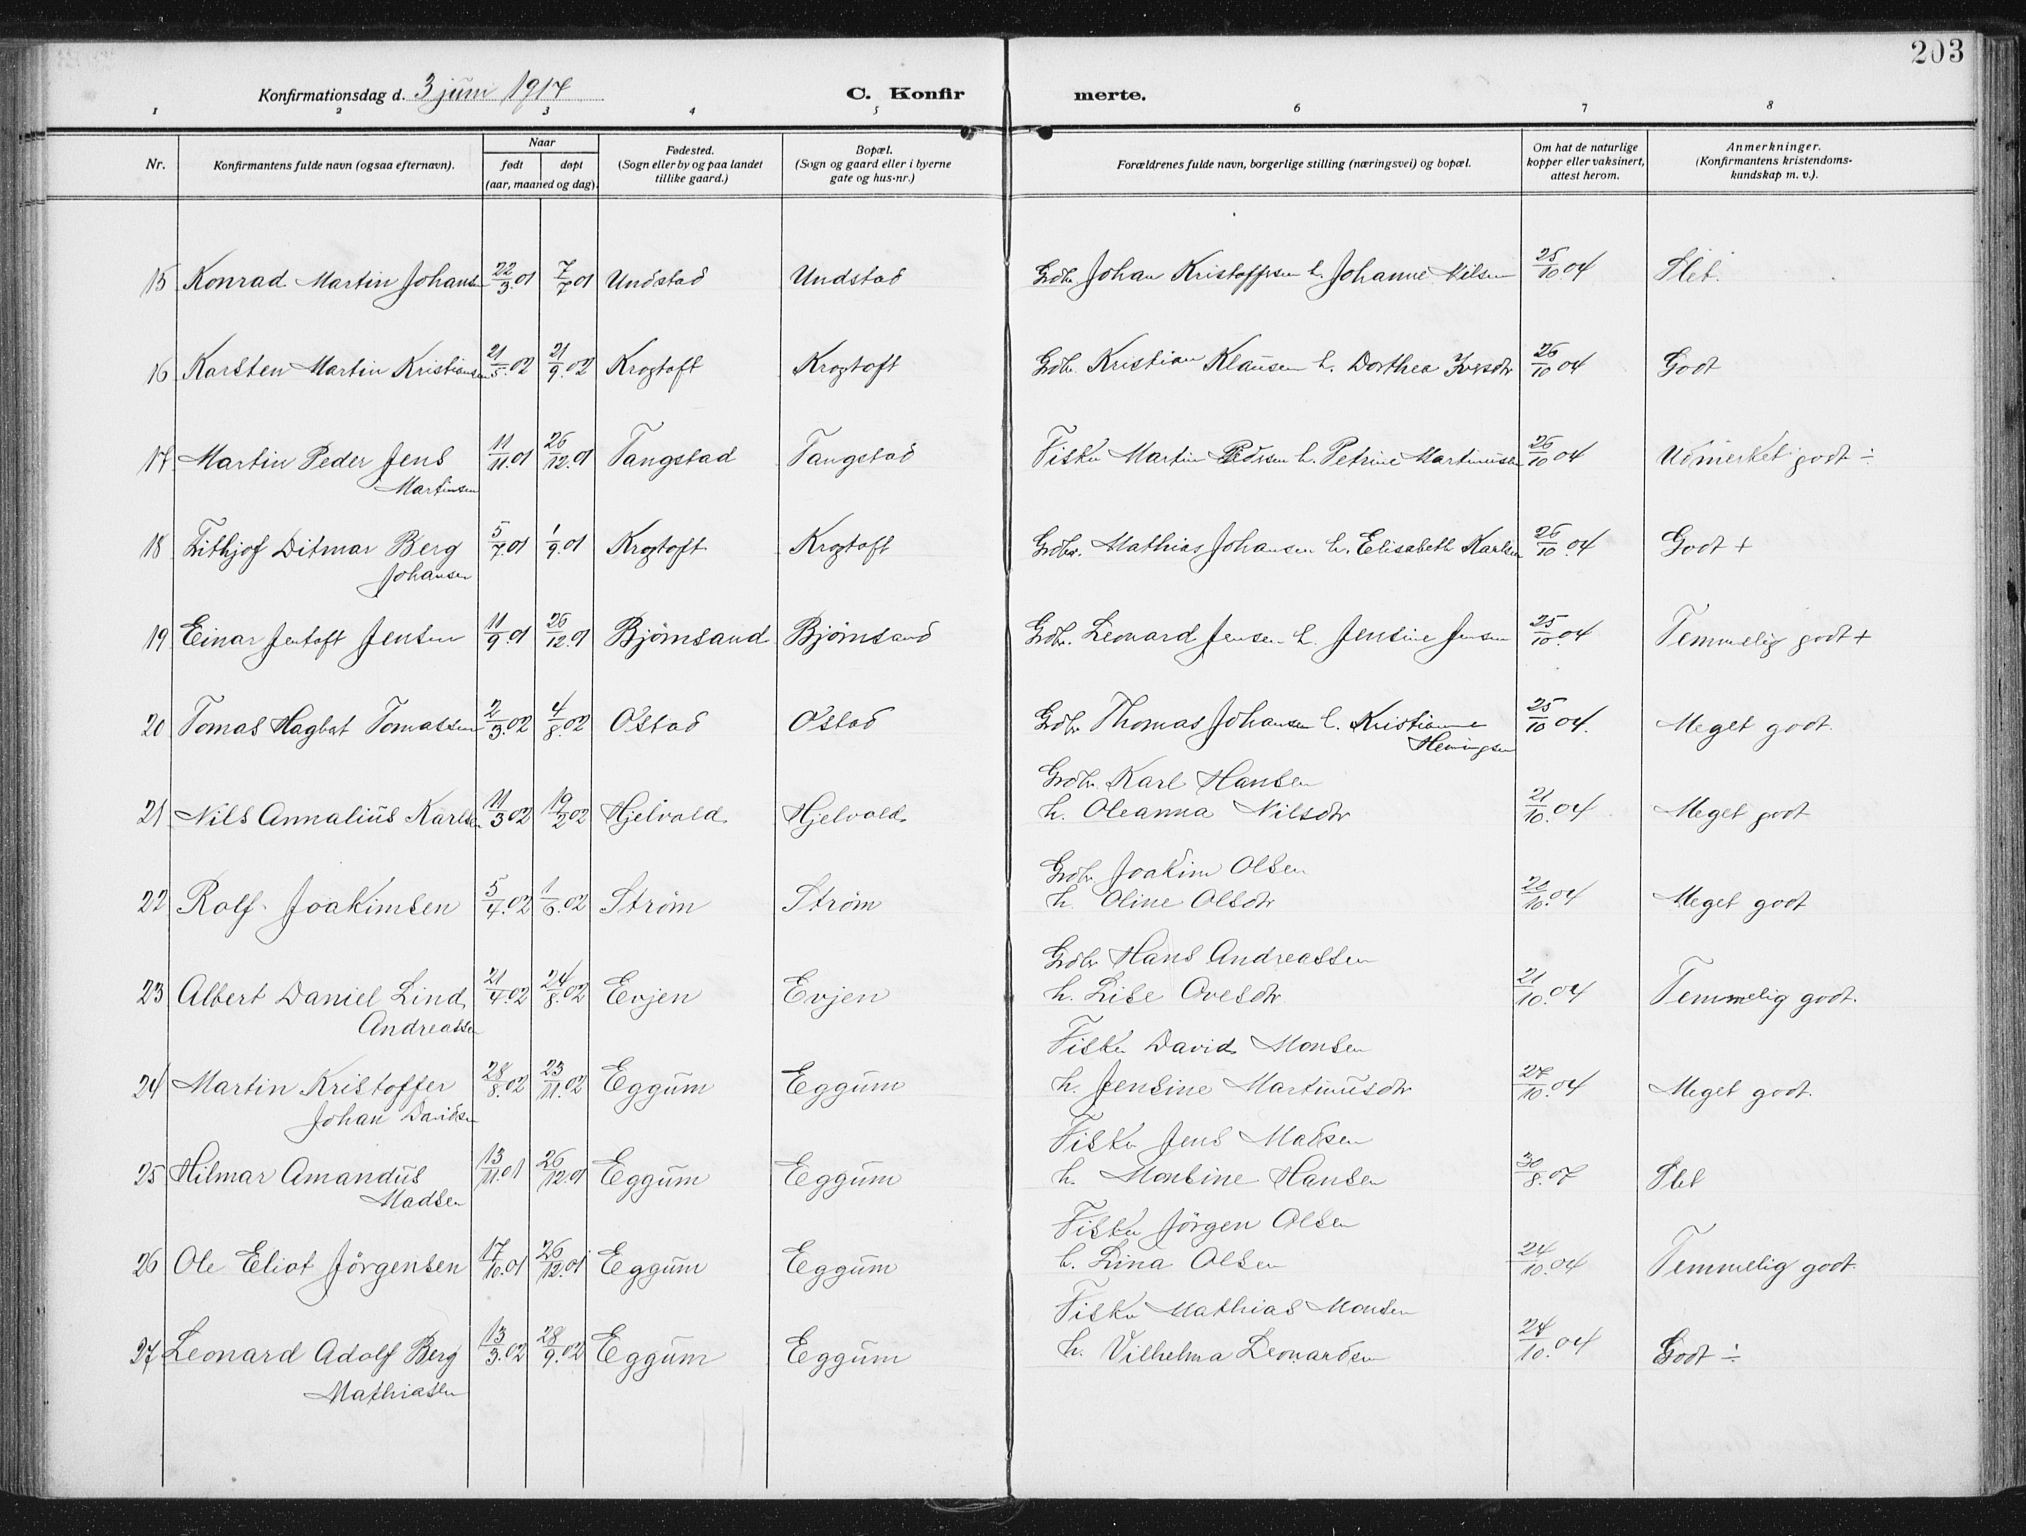 203
Konfirmationsdag d. 3 juni 1917 C. Konfirmerte.
1 2 3 4 5 6 7 8
Nr. Konfirmantens fulde navn (ogsaa efternavn). Naar født døpt (aar, maaned og dag). Fødested. (Sogn eller by og paa landet tillike gaard.) Bopæl. (Sogn og gaard eller i byerne gate og hus-nr.) Forældrenes fulde navn, borgerlige stilling (næringsvei) og bopæl. Om hat de naturlige kopper eller vaksinert, attest herom. Anmerkninger. (Konfirmantens kristendomskundskap m. v.).
15 Konrad Martin Johansen 22/3.01 7/7 01 Undstad Undstad Grdbr. Johan Kristoffersen h. Johanne Nilsen 25/10.04 Slet.
16 Karsten Martin Kristiansen 21/5.02 21/9.02 Krogtoft Krogtoft Grdbr. Kristian Klausen h. Dorthea Iversdtr 26/10 04 Godt
17 Martin Peder Jens 11/11.01 26/12.01 Tangstad Tangstad Fisker Martin Pedersen h. Petrine Martinussen 26/10 04 Udmerket godt ÷
Martinsen
18 Fithjof Ditmar Berg 5/7.01 1/9.01 Krogtoft Krogtoft Grdbr. Mathias Johansen h. Elisabeth Karlsen 26/10.04 Godt +
Johansen
19 Einar Jentoft Jensen 11/9.01 26/12.01 Bjørnsand Bjørnsand Grdbr. Leonard Jensen h. Jensine Jensen 25/10.04 Temmelig godt +
20 Tomas Hagbat Tomassen 2/3.02 4/8.02 Østad Østad Grdbr Thomas Johansen h. Kristianne 25/10 04. Meget godt.
Hemingsen
Grdbr Karl Hansen
21 Nils Annalius Karlsen 11/3 02 19/2 02 Hjelvold Hjelvold h. Oleanna Nilsdtr 21/10.04 Meget godt
Grdbr Joakim Olsen
22 Rolf Joakimsen 5/4.02 1/6.02 Strøm Strøm h. Oline Olsdtr 20/10.04 Meget godt
Grdbr Hans Andreassen
23 Albert Daniel Lind 21/4.02 24/8.02 Evjen Evjen h. Lise Ovesdtr 21/10.04 Temmelig godt.
Andreassen
Fisker David Monsen
24 Martin Kristoffer 28/8.02 23/11.02 Eggum Eggum h. Jensine Martinusdtr 27/10.04 Meget godt.
Johan Davidsen
Fisker Jens Madsen
25 Hilmar Amandus 13/11.01 26/12.01 Eggum Eggum h. Monsine Hansen 30/8.07 Slet
Madsen
Fisker Jörgen Olsen
26 Ole Eliot Jörgensen 17/10.01 26/12.01 Eggum Eggum h. Lina Olsen 24/10.04 Temmelig godt.
Fisker Mathias Monsen
27 Leonard Adolf Berg 13/3.02 28/9.02 Eggum Eggum h. Vilhelma Leonardsen 24/10.04 Godt ÷
Mathiasen